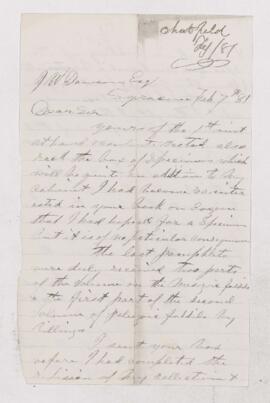 Chatfield
Feby/81
J W Dawson Esq
Syracuse Feb 7th 81
Dear Sir
Yours of the 1st inst
at hand contents noted also
recd the box of Specimens which
will be quite an addition to my
cabinet I had become so inter
ested in your book on Eozoon
that I had hoped for a specimen
but it is of no particular consequence
The last pamphlets
were duly received two parts
of the volume on the fossils
& the first part of the second
volume of paleozoic fossils by
Billings
I sent your box
before I had completed the
revision of my collection &